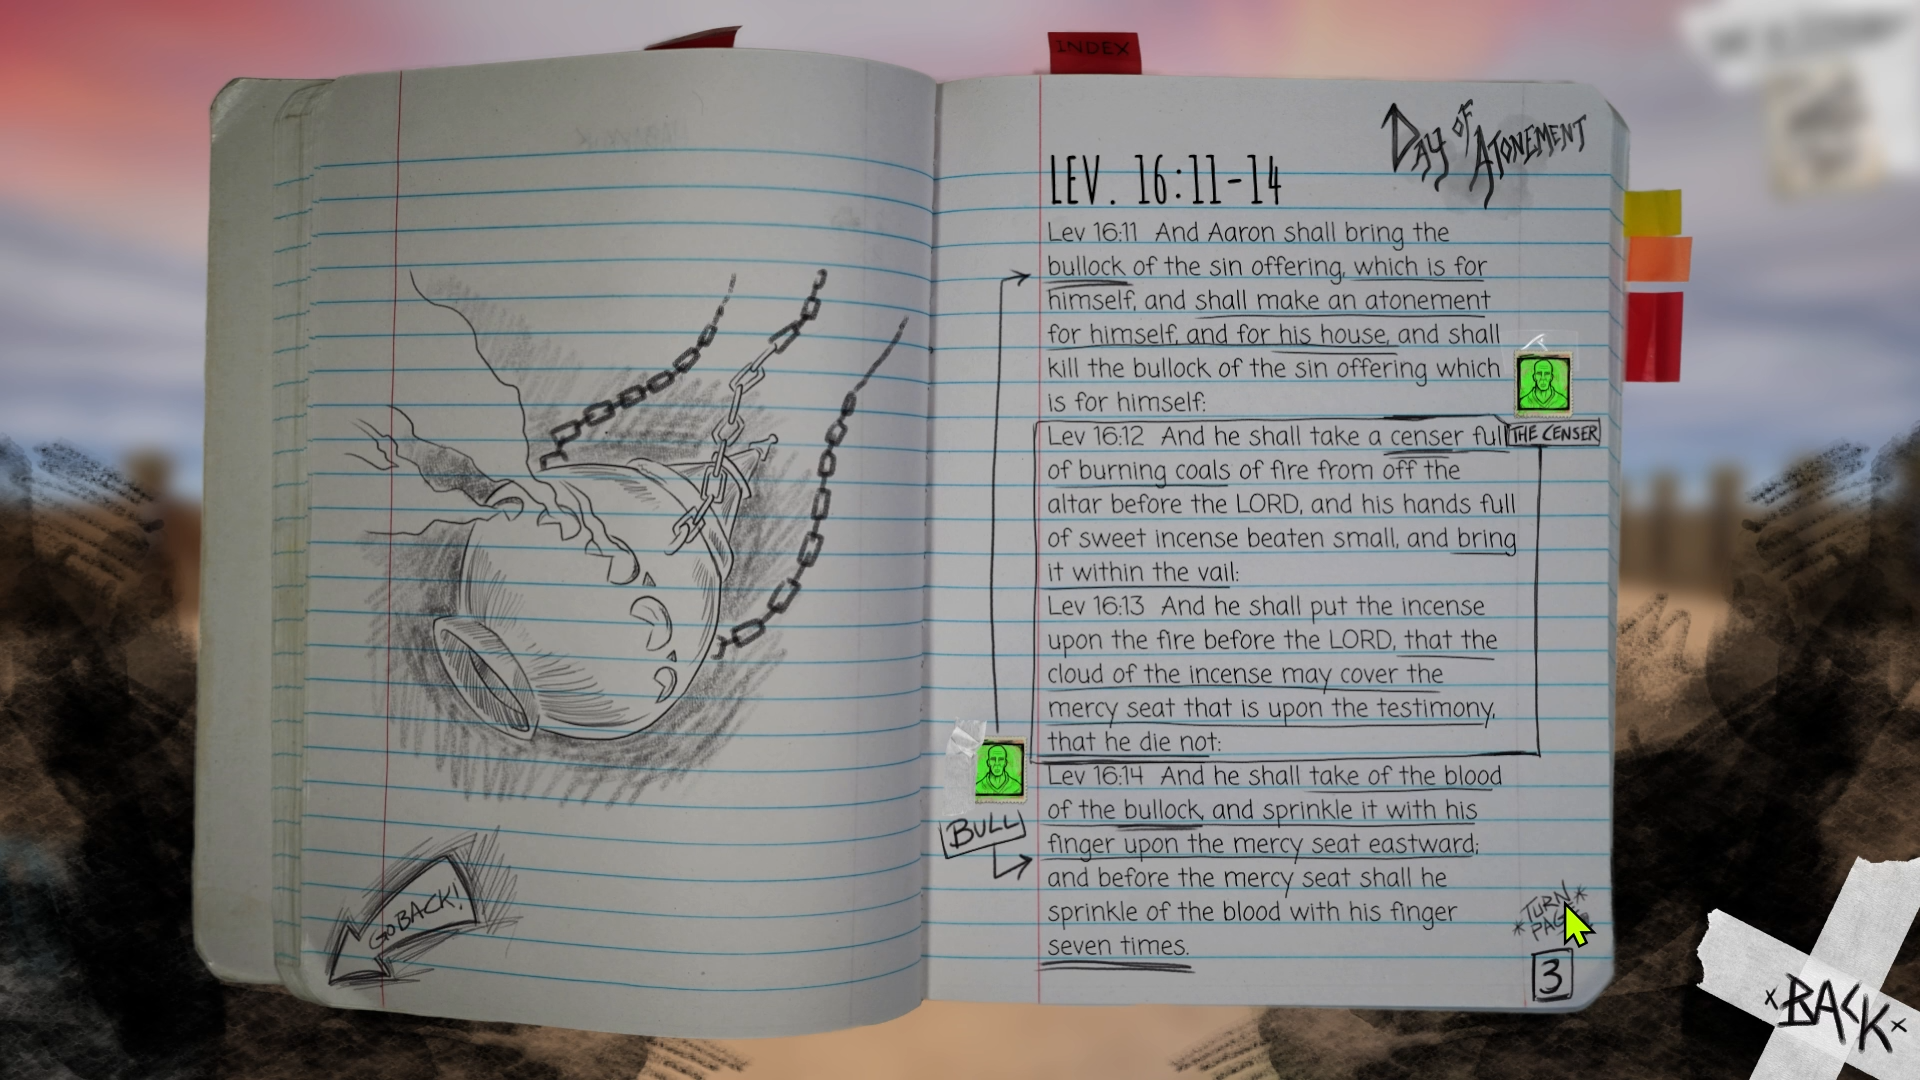 INDEX
DAY OF ATONEMENT
LEV. 16:11-14
Lev 16:11 And Aaron shall bring the
bullock of the sin offering, which is for
himself, and shall make an atonement
for himself, and for his house, and shall
kill the bullock of the sin offering which
is for himself:
Lev 16:12 And he shall take a censer full
THE CENSER
of burning coals of fire from off the
altar before the LORD, and his hands full
of sweet incense beaten small, and bring
it within the vail:
Lev 16:13 And he shall put the incense
upon the fire before the LORD, that the
cloud of the incense may cover the
mercy seat that is upon the testimony,
that he die not:
Lev 16:14 And he shall take of the blood
of the bullock, and sprinkle it with his
finger upon the mercy seat eastward;
and before the mercy seat shall he
sprinkle of the blood with his finger
seven times.
BULL
GO BACK!
*TURN*
3
*BACK*